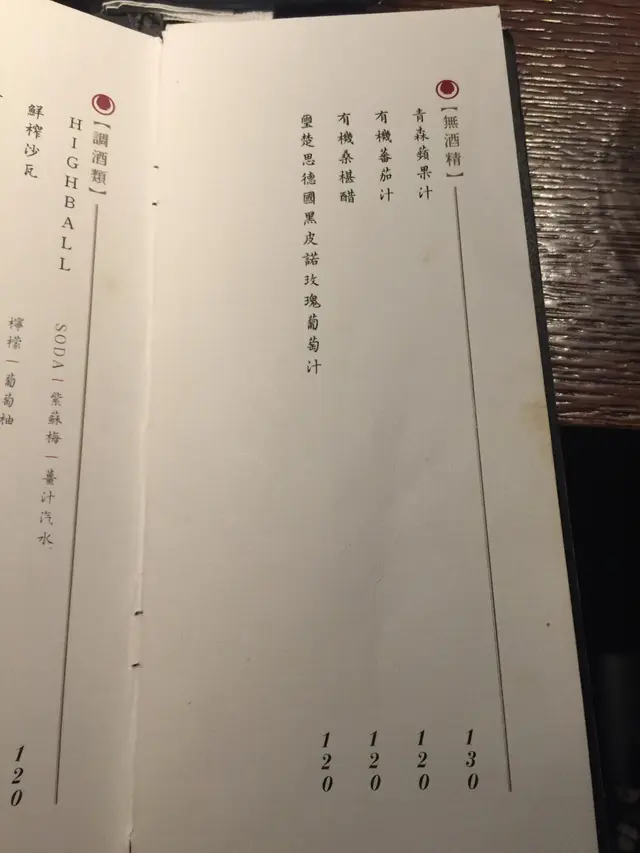 【無酒精】
青森蘋果汁 130
有機蕃茄汁 120
有機桑椹醋 120
璽楚思德國黑皮諾玫瑰葡萄汁 120
【調酒類】
HIGHBALL SODA|紫蘇梅|薑汁汽水 120
鮮榨沙瓦 檸檬|葡萄柚